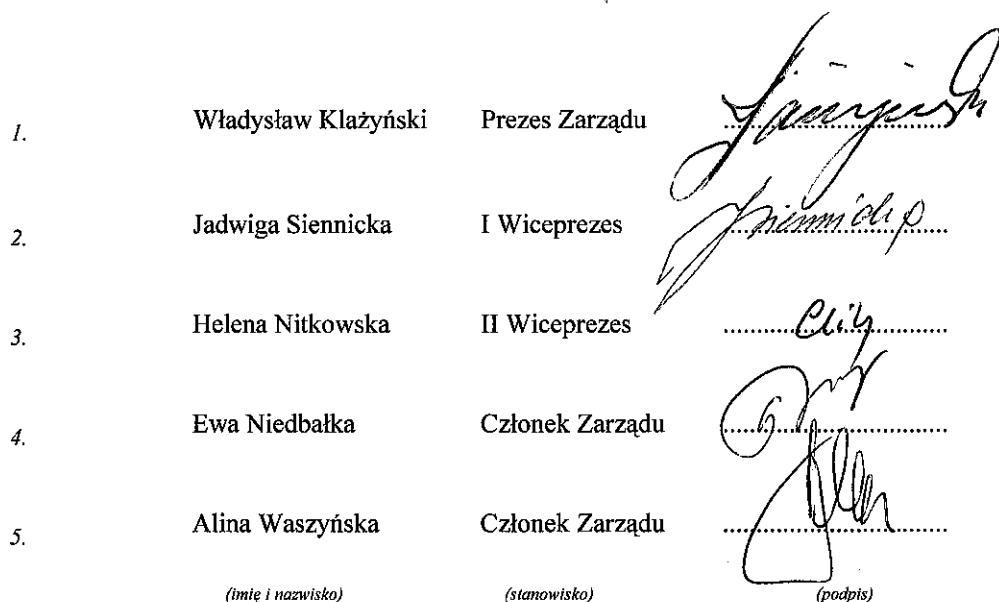 1. Władysław Klażyński Prezes Zarządu
2. Jadwiga Siennicka I Wiceprezes
3. Helena Nitkowska II Wiceprezes
4. Ewa Niedbałka Członek Zarządu
5. Alina Waszyńska Członek Zarządu
(imię i nazwisko) (stanowisko) (podpis)